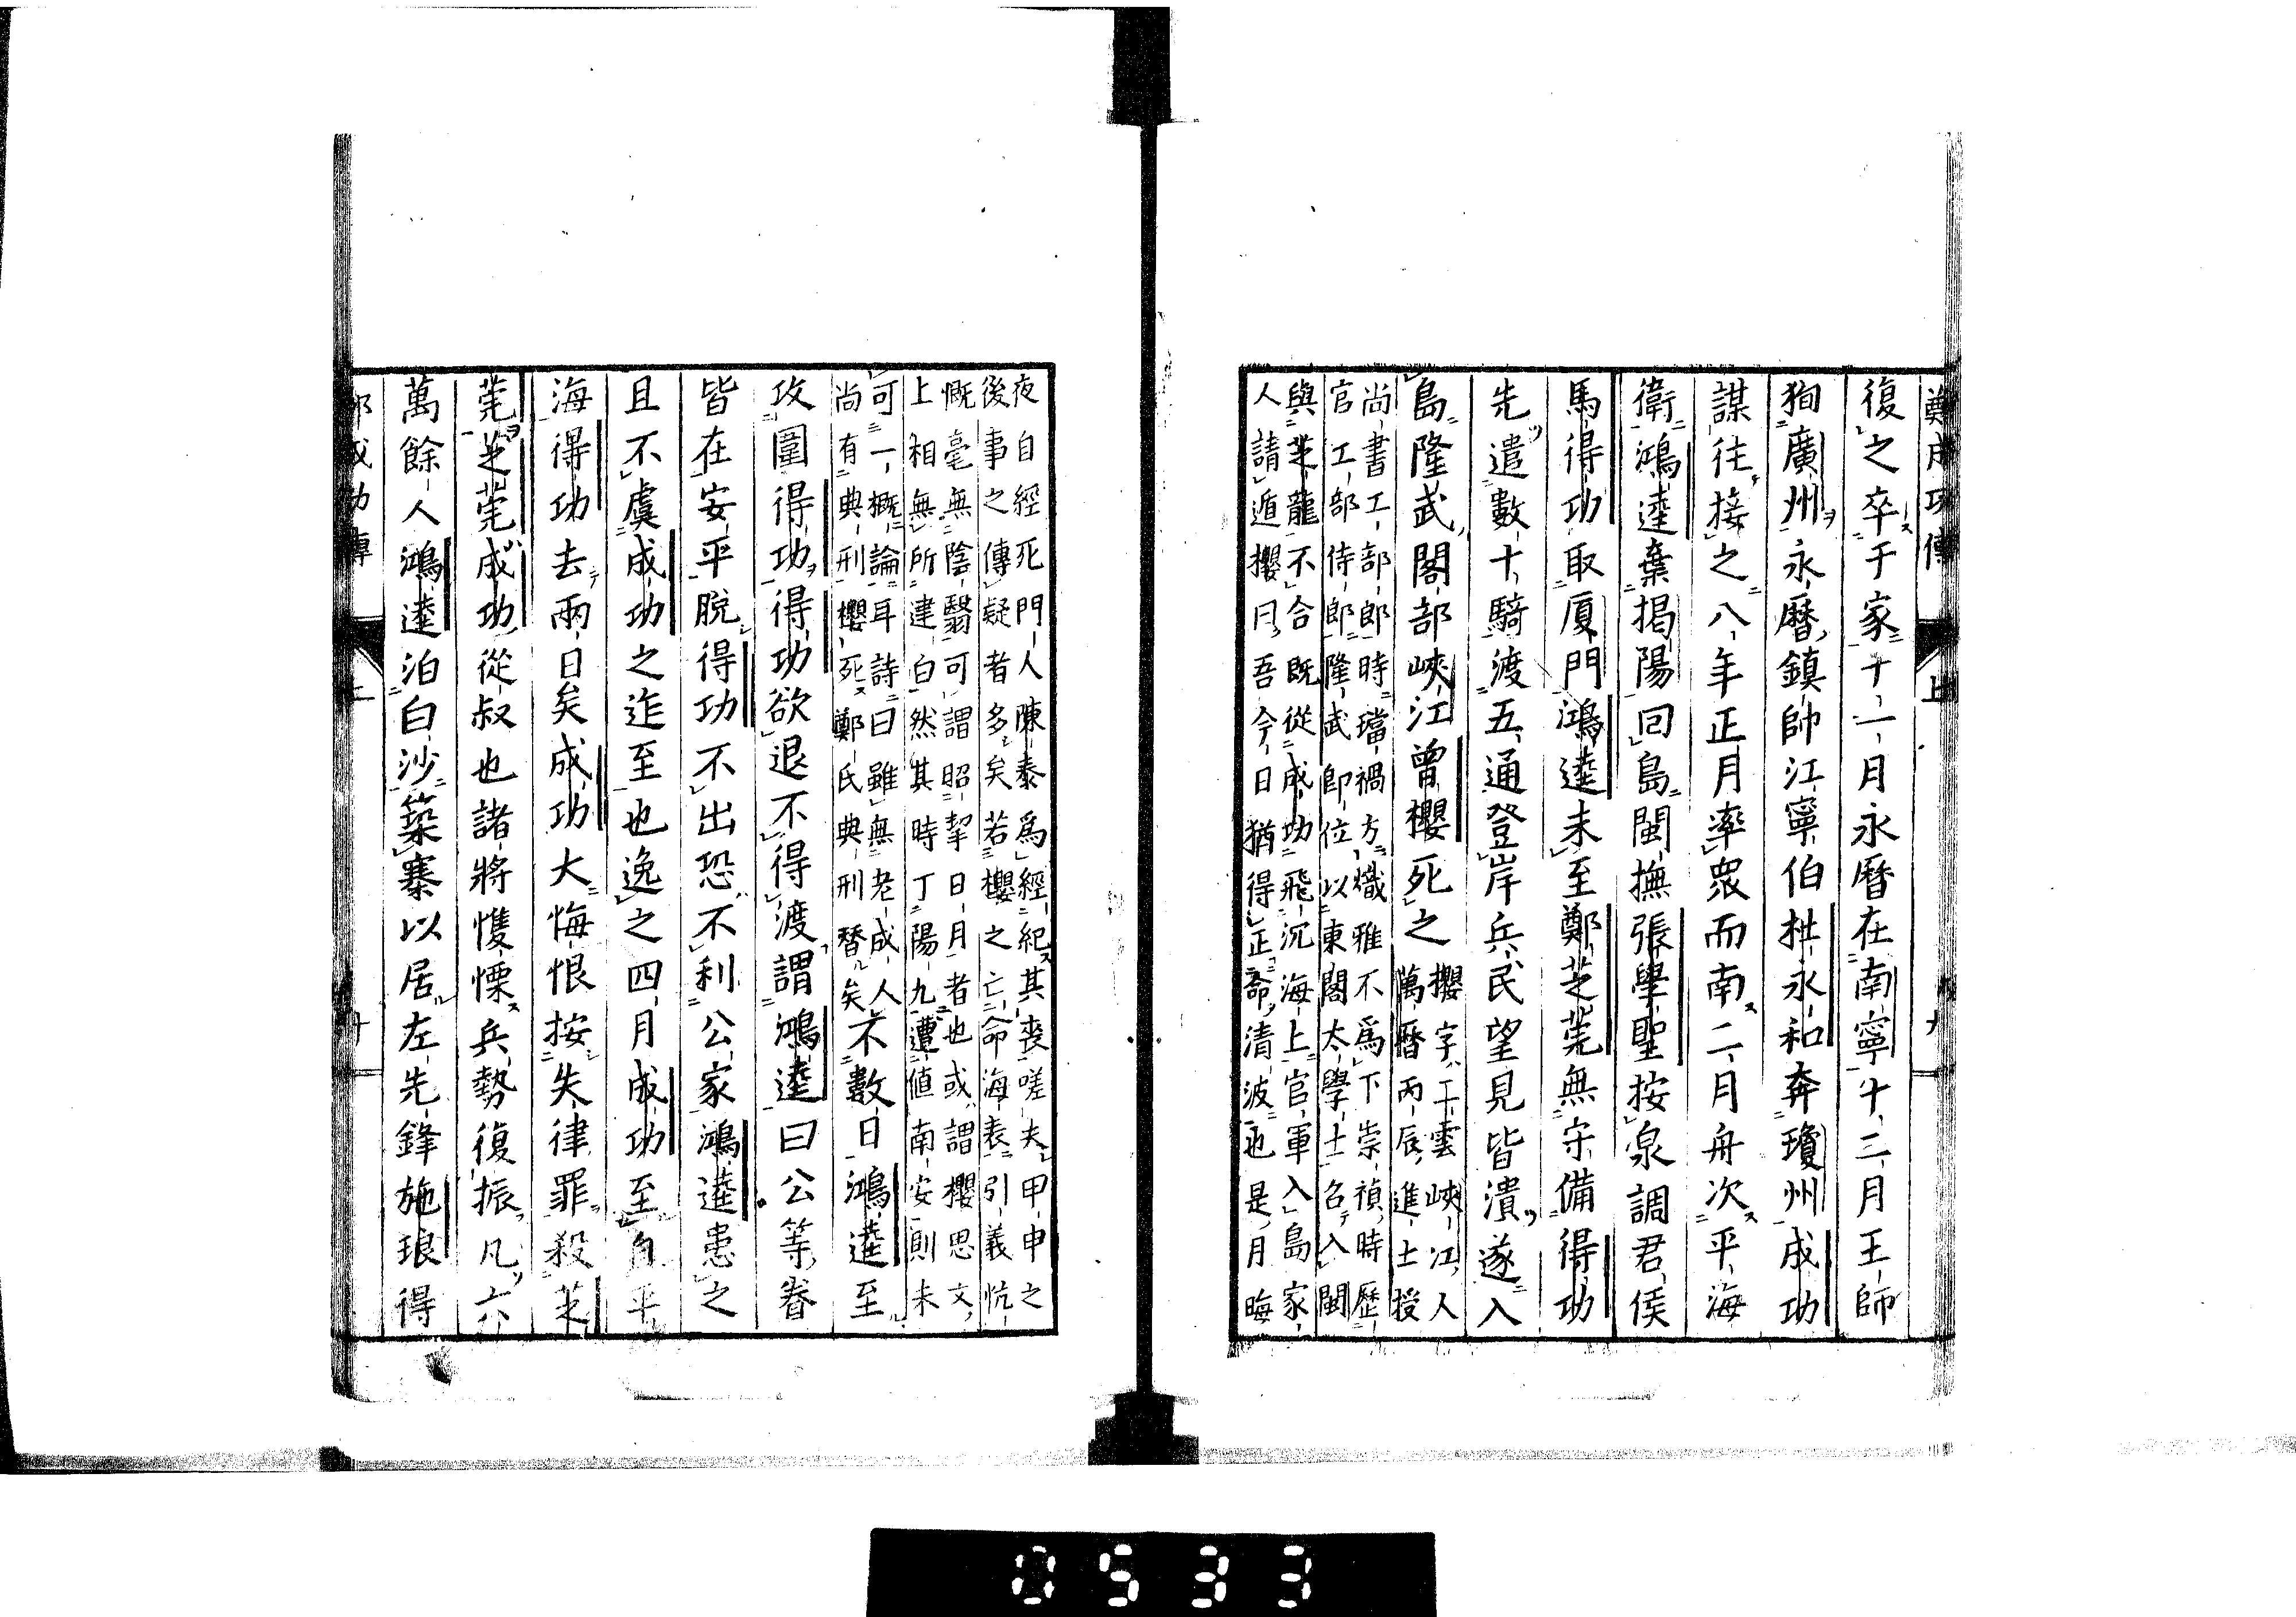 鄭成功傳 上 九
復之卒于家十一月永曆在南寧十二月王師
狥廣州永曆鎮帥江寧伯杜永和奔瓊州成功
謀往接之八年正月率衆而南二月舟次平海
衛鴻逵棄揭陽回島閩撫張學聖按泉調君侯
馬得功取厦門鴻逵未至鄭芝莞無守備得功
先遣數十騎渡五通登岸兵民望見皆潰遂入
島隆武閣部峽江曾櫻死之
櫻字工雲峽江人
萬曆丙辰進士授
尚書工部郎時璫禍方熾雅不為下崇禎時歷
官工部侍郎隆武即位以東閣太學士召入閩
與芝龍不合既從成功飛沉海上官軍入島家
人請遁櫻曰吾今日猶得正命清波也是月晦
夜自經死門人陳泰為經紀其喪嗟夫甲申之
後事之傳疑者多矣若櫻之亡命海表引義忼
慨毫無陰翳可謂昭挈日月者也或謂櫻思文
上相無所建白然其時丁陽九遭值南安則未
可一槪論耳詩曰雖無老成人
尚有典刑櫻死鄭氏典刑替矣
不數日鴻逵至
攻圍得功得功欲退不得渡謂鴻逵曰公等眷
皆在安平脫得功不出恐不利公家鴻逵患之
且不虞成功之迮至也逸之四月成功至自平
海得功去兩日矣成功大悔恨按失律罪殺芝
莞芝莞成功從叔也諸將慴慄兵勢復振凡六
萬餘人鴻逵泊白沙築寨以居左先鋒施琅得
成功傳 十
0533